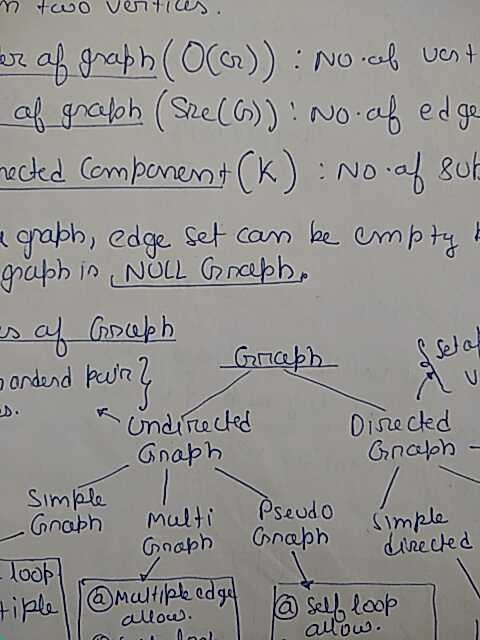 n two vertices.
er of graph (O(G)) : No. of vert
of graph (Size(G)) : No. of edge
nected Component (K) : No. of sub
graph, edge set can be empty
graph is NULL Graph.
es of Graph
Graph
{ set of
onderd pair }
es.
Undirected Graph
Directed Graph
Simple Graph
Multi Graph
Pseudo Graph
Simple directed
loop
tiple
@ Multiple edge allow.
@ Self loop allow.